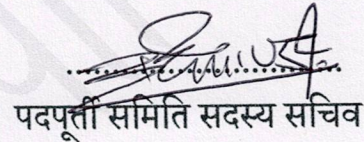 पदपूर्ती समिति सदस्य सचिव